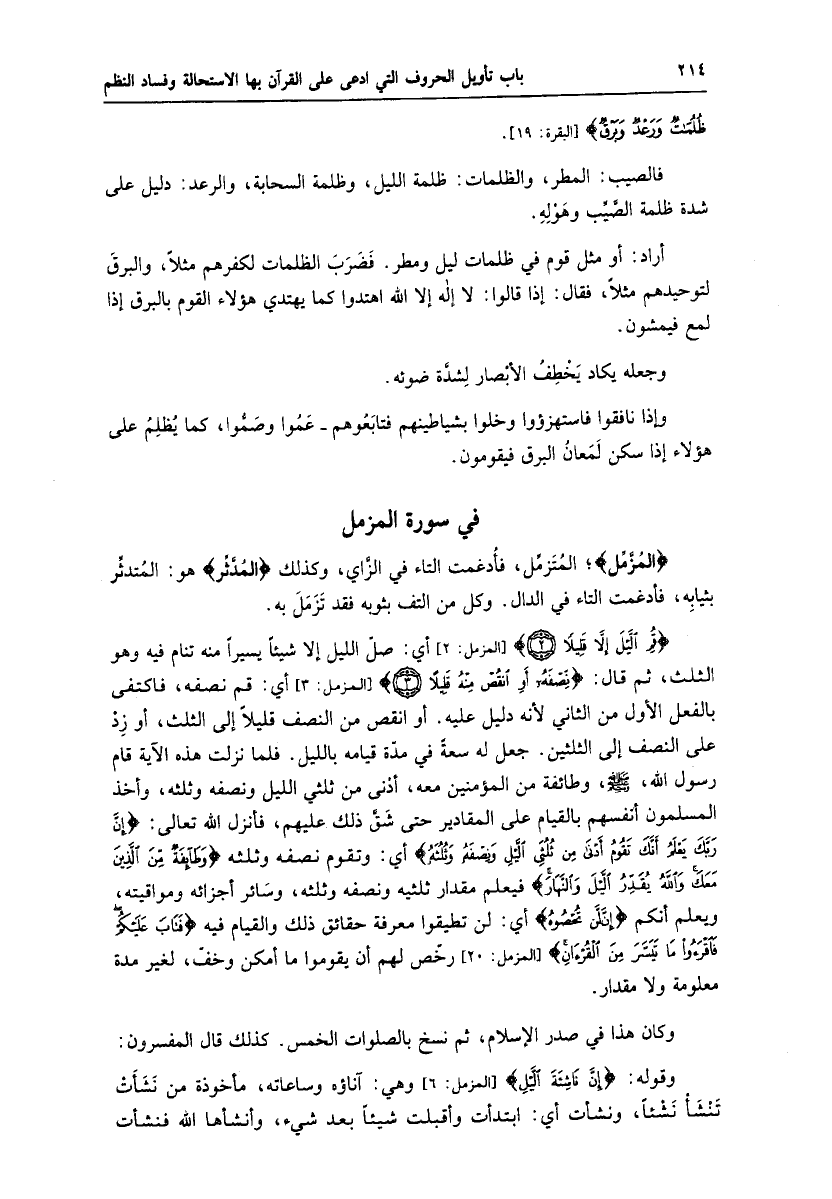 ٢١٤ باب تأويل الحروف التي ادعى على القرآن بها الاستحالة وفساد النظم
ظُلُمَٰتٌ وَرَعْدٌ وَبَرْقٌ﴾ [البقرة: ١٩].
فالصيب: المطر، والظلمات: ظلمة الليل، وظلمة السحابة، والرعد: دليل على
شدة ظلمة الصَّيِّب وهَوْلِهِ.
أراد: أو مثل قوم في ظلمات ليل ومطر. فَضَرَبَ الظلمات لكفرهم مثلاً، والبرقَ
لتوحيدهم مثلاً، فقال: إذا قالوا: لا إلٰه إلا الله اهتدوا كما يهتدي هؤلاء القوم بالبرق إذا
لمع فيمشون.
وجعله يكاد يَخْطِفُ الأبْصار لِشدَّة ضوئه.
وإذا نافقوا فاستهزؤوا وخلوا بشياطينهم فتابَعُوهم ـ عَمُوا وصَمُّوا، كما يُظلِمُ على
هؤلاء إذا سكن لَمَعانُ البرق فيقومون.
في سورة المزمل
﴿المُزَّمِّل﴾؛ المُتَزمِّل، فأُدغمت التاء في الزَّاي، وكذلك ﴿المُدَّثِّر﴾ هو: المُتدثِّر
بثيابِه، فأدغمت التاء في الدال. وكل من التف بثوبه فقد تَزَمَلَ به.
﴿قُمِ ٱلَّيْلَ إِلَّا قَلِيلًا ٢﴾ [المزمل: ٢] أي: صلّ الليل إلا شيئاً يسيراً منه تنام فيه وهو
الثلث، ثم قال: ﴿نِّصْفَهُۥٓ أَوِ ٱنقُصْ مِنْهُ قَلِيلًا ٣﴾ [المزمل: ٣] أي: قم نصفه، فاكتفى
بالفعل الأول من الثاني لأنه دليل عليه. أو انقص من النصف قليلاً إلى الثلث، أو زِدْ
على النصف إلى الثلثين. جعل له سعةً في مدّة قيامه بالليل. فلما نزلت هذه الآية قام
رسول الله، ﷺ، وطائفة من المؤمنين معه، أدْنى من ثلثي الليل ونصفه وثلثه، وأخذ
المسلمون أنفسهم بالقيام على المقادير حتى شَقَّ ذلك عليهم، فأنزل الله تعالى: ﴿إِنَّ
رَبَّكَ يَعْلَمُ أَنَّكَ تَقُومُ أَدْنَىٰ مِن ثُلُثَيِ ٱلَّيْلِ وَنِصْفَهُۥ وَثُلُثَهُۥ﴾ أي: وتقوم نصفه وثلثه ﴿وَطَآئِفَةٌ مِّنَ ٱلَّذِينَ
مَعَكَ وَٱللَّهُ يُقَدِّرُ ٱلَّيْلَ وَٱلنَّهَارَ﴾ فيعلم مقدار ثلثيه ونصفه وثلثه، وسَائر أجزائه ومواقيته،
ويعلم أنكم ﴿إِنلَّن تُحْصُوهُ﴾ أي: لن تطيقوا معرفة حقائق ذلك والقيام فيه ﴿فَتَابَ عَلَيْكُمْ
فَٱقْرَءُوا۟ مَا تَيَسَّرَ مِنَ ٱلْقُرْءَانِ﴾ [المزمل: ٢٠] رخّص لهم أن يقوموا ما أمكن وخفّ، لغير مدة
معلومة ولا مقدار.
وكان هذا في صدر الإسلام، ثم نسخ بالصلوات الخمس. كذلك قال المفسرون:
وقوله: ﴿إِنَّ نَاشِئَةَ ٱلَّيْلِ﴾ [المزمل: ٦] وهي: آناؤه وساعاته، مأخوذة من نَشَأَتْ
تَنْشَأُ نَشْئاً، ونشأت أي: ابتدأت وأقبلت شيئاً بعد شيء، وأنشأها الله فنشأت